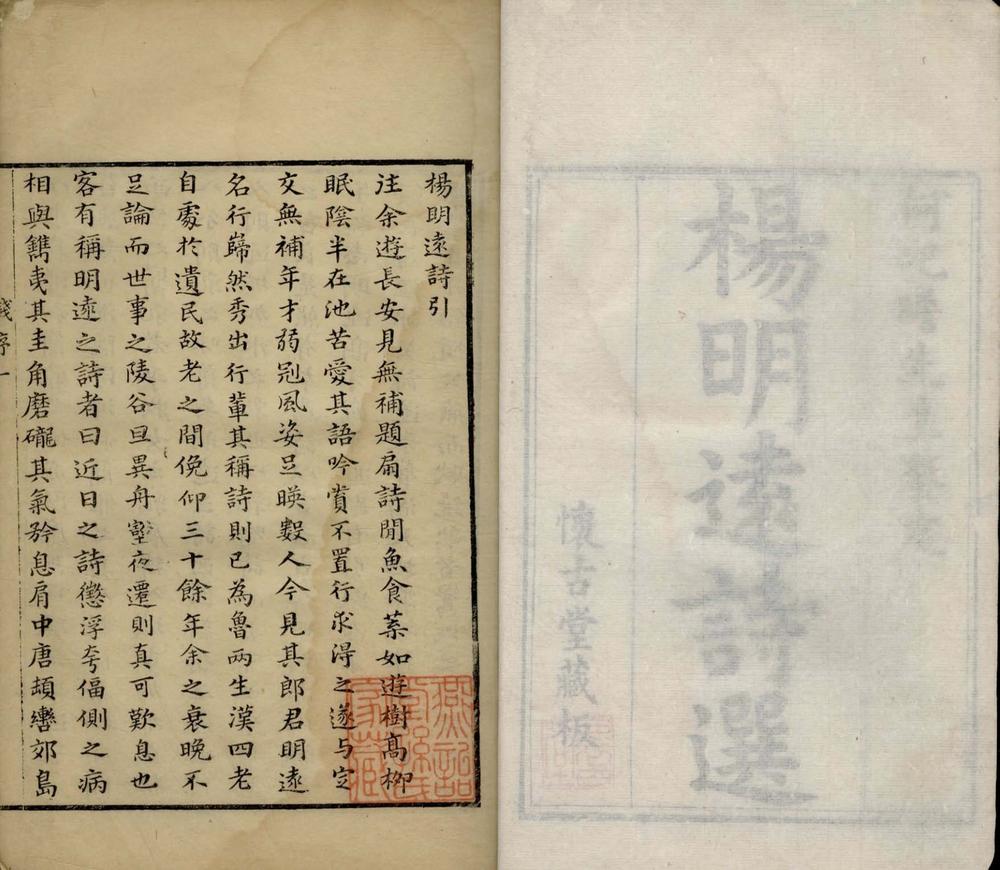 楊明遠詩選
懷古堂藏板
楊明遠詩引
注余遊長安見無補題扇詩閒魚食葉如遊樹高柳
眠陰半在池苦愛其語吟賞不置行求淂之遂与定
交無補年才弱冠風姿足暎數人今見其郎君明遠
名行巋然秀出行輩其稱詩則已為魯兩生漢四老
自處於遺民故老之間俛仰三十餘年余之衰晚不
足論而世事之陵谷旦異舟壑夜遷則真可歎息也
客有稱明遠之詩者曰近日之詩懲浮夸偪側之病
相與鐫夷其圭角磨礲其氣矜息肩中唐頡轡郊島
錢序一